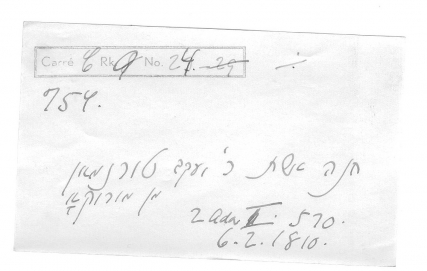 Carré C Rk 9 No. 24. 29
754.
חנה אשת ר' יעקב טורנמאן
מן
2 Adar II. 570.
6.2.1810.